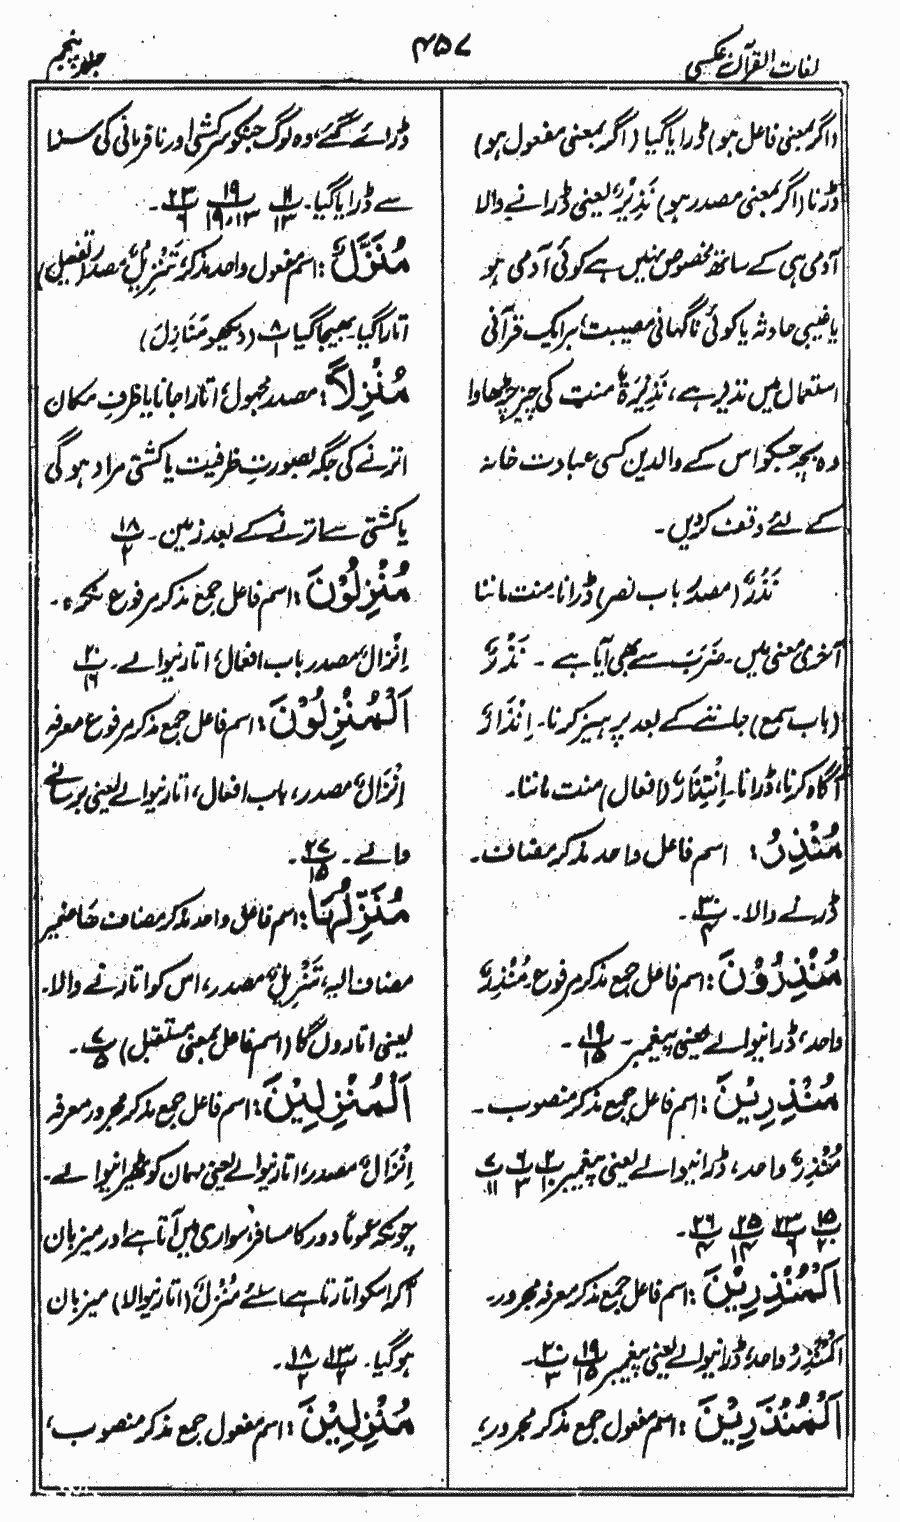 لغات القرآن عکسی
۴۵۷
جلد پنجم
(اگر بمعنی فاعل ہو) ڈرایا گیا (اگر بمعنی مفعول ہو)
ڈرنا (اگر بمعنی مصدر ہو) نَذِیْرٌ یعنی ڈرانے والا
آدمی ہی کے ساتھ مخصوص نہیں ہے کوئی آدمی ہو
یا غیبی حادثہ یا کوئی ناگہانی مصیبت، ہر ایک قرآنی
استعمال میں نذیر ہے، نَذِیْرَۃٌ منت کی چیز چڑھاوا
وہ بچہ جسکو اس کے والدین کسی عبادت خانہ
کے لئے وقف کر دیں۔
نَذْرٌ (مصدر باب نصر) ڈرانا، منت ماننا
آخری معنی میں۔ ضَرَبَ سے بھی آیا ہے۔ نَذْرٌ
(باب سمع) جاننے کے بعد پرہیز کرنا۔ اِنْذَارٌ
آگاہ کرنا، ڈرانا۔ اِنْتِذَارٌ (افعال) منت ماننا۔
مُنْذِرُ: اسم فاعل واحد مذکر مضاف۔
ڈرانے والا۔ ۳۰/۴۔
مُنْذِرُوْنَ: اسم فاعل جمع مذکر مرفوع۔ مُنْذِرٌ
واحد، ڈرانیوالے یعنی پیغمبر۔ ۱۹/۱۵۔
مُنْذِرِیْنَ: اسم فاعل جمع مذکر منصوب۔
مُنْذِرٌ واحد، ڈرانیوالے یعنی پیغمبر ۲/۱۰ ۶/۳ ۷/۱۱
۱۵/۲۰ ۲۳/۶ ۲۵/۱۴ ۲۶/۴۔
اَلْمُنْذِرِیْنَ: اسم فاعل جمع مذکر معرفہ مجرور۔
اَلْمُنْذِرُ واحد، ڈرانیوالے یعنی پیغمبر ۱۹/۱۵ ۲۰/۳۔
اَلْمُنْذَرِیْنَ: اسم مفعول جمع مذکر مجرور،
ڈرائے گئے، وہ لوگ جنکو سرکشی اور نافرمانی کی سزا
سے ڈرایا گیا۔ ۱۱/۱۳ ۱۹/۱۹،۱۳ ۲۳/۶۔
مُنَزَّلٌ: اسم مفعول واحد مذکر، تَنْزِیْلٌ مصدر (تفعیل)
اتارا گیا۔ بھیجا گیا ۸/۱ (دیکھو مَنَازِلَ)
مُنْزَلًا: مصدر مجہول، اتارا جانا یا ظرف مکان
اترنے کی جگہ بصورت ظرفیت یا کشتی مراد ہوگی
یا کشتی سے اترنے کے بعد زمین۔ ۱۸/۲
مُنْزِلُوْنَ: اسم فاعل جمع مذکر مرفوع نکرہ۔
اِنْزَالٌ مصدر باب افعال، اتارنیوالے۔ ۲۰/۱۶
اَلْمُنْزِلُوْنَ: اسم فاعل جمع مذکر مرفوع معرفہ
اِنْزَالٌ مصدر، باب افعال، اتارنیوالے یعنی برسانے
والے۔ ۲۷/۱۵۔
مُنَزِّلُہَا: اسم فاعل واحد مذکر مضاف ھَا ضمیر
مضاف الیہ، تَنْزِیْلٌ مصدر، اس کو اتارنے والا۔
یعنی اتاروں گا (اسم فاعل بمعنی مستقبل) ۷/۵۔
اَلْمُنْزِلِیْنَ: اسم فاعل جمع مذکر مجرور معرفہ
اِنْزَالٌ مصدر، اتارنیوالے یعنی مہمان کو ٹھیرانیوالے۔
چونکہ عموماً دور کا مسافر سواری میں آتا ہے اور میزبان
آکر اسکو اتارتا ہے اسلئے مُنْزِلٌ (اتارنیوالا) میزبان
ہوگیا۔ ۱۳/۲ ۱۸/۲۔
مُنْزَلِیْنَ: اسم مفعول جمع مذکر منصوب،